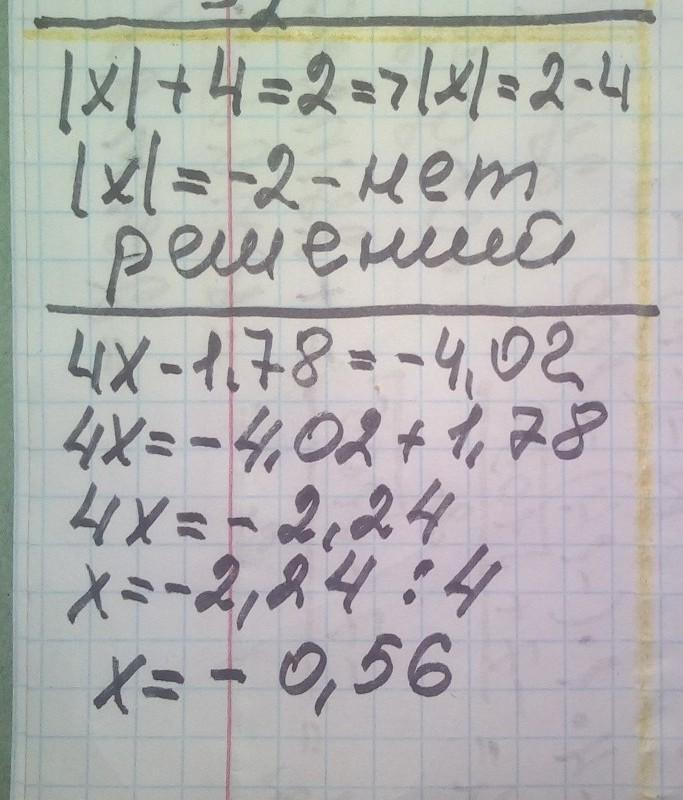 |x| + 4 = 2 => |x| = 2 - 4
|x| = -2 - нет
решений
4x - 1,78 = -4,02
4x = -4,02 + 1,78
4x = - 2,24
x = -2,24 : 4
x = - 0,56